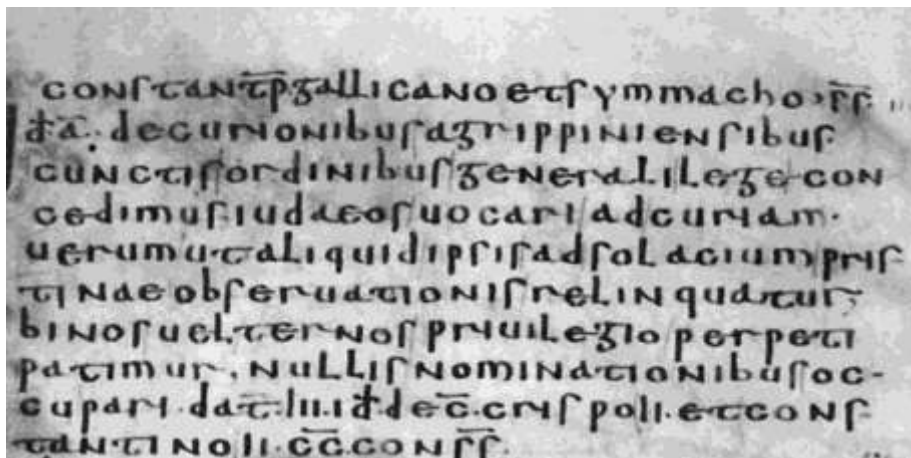 constantp̄ gallicano et symmacho · s̄s̄
đā. decurionibus agrippiniensibus
cunctis ordinibus generali lege con
cedimus iudaeos uocari ad curiam·
uerum ut aliquid ipsis ad solacium pris
tinae obseruationis relinquatur,
binos uel ternos priuilegio perpeti
patimur, nullis nominationibus oc-
cupari·dat̄·iii·iđ·dec̄·crispo ii·et cons
tantino ii·c̄c̄·cons̄s̄·